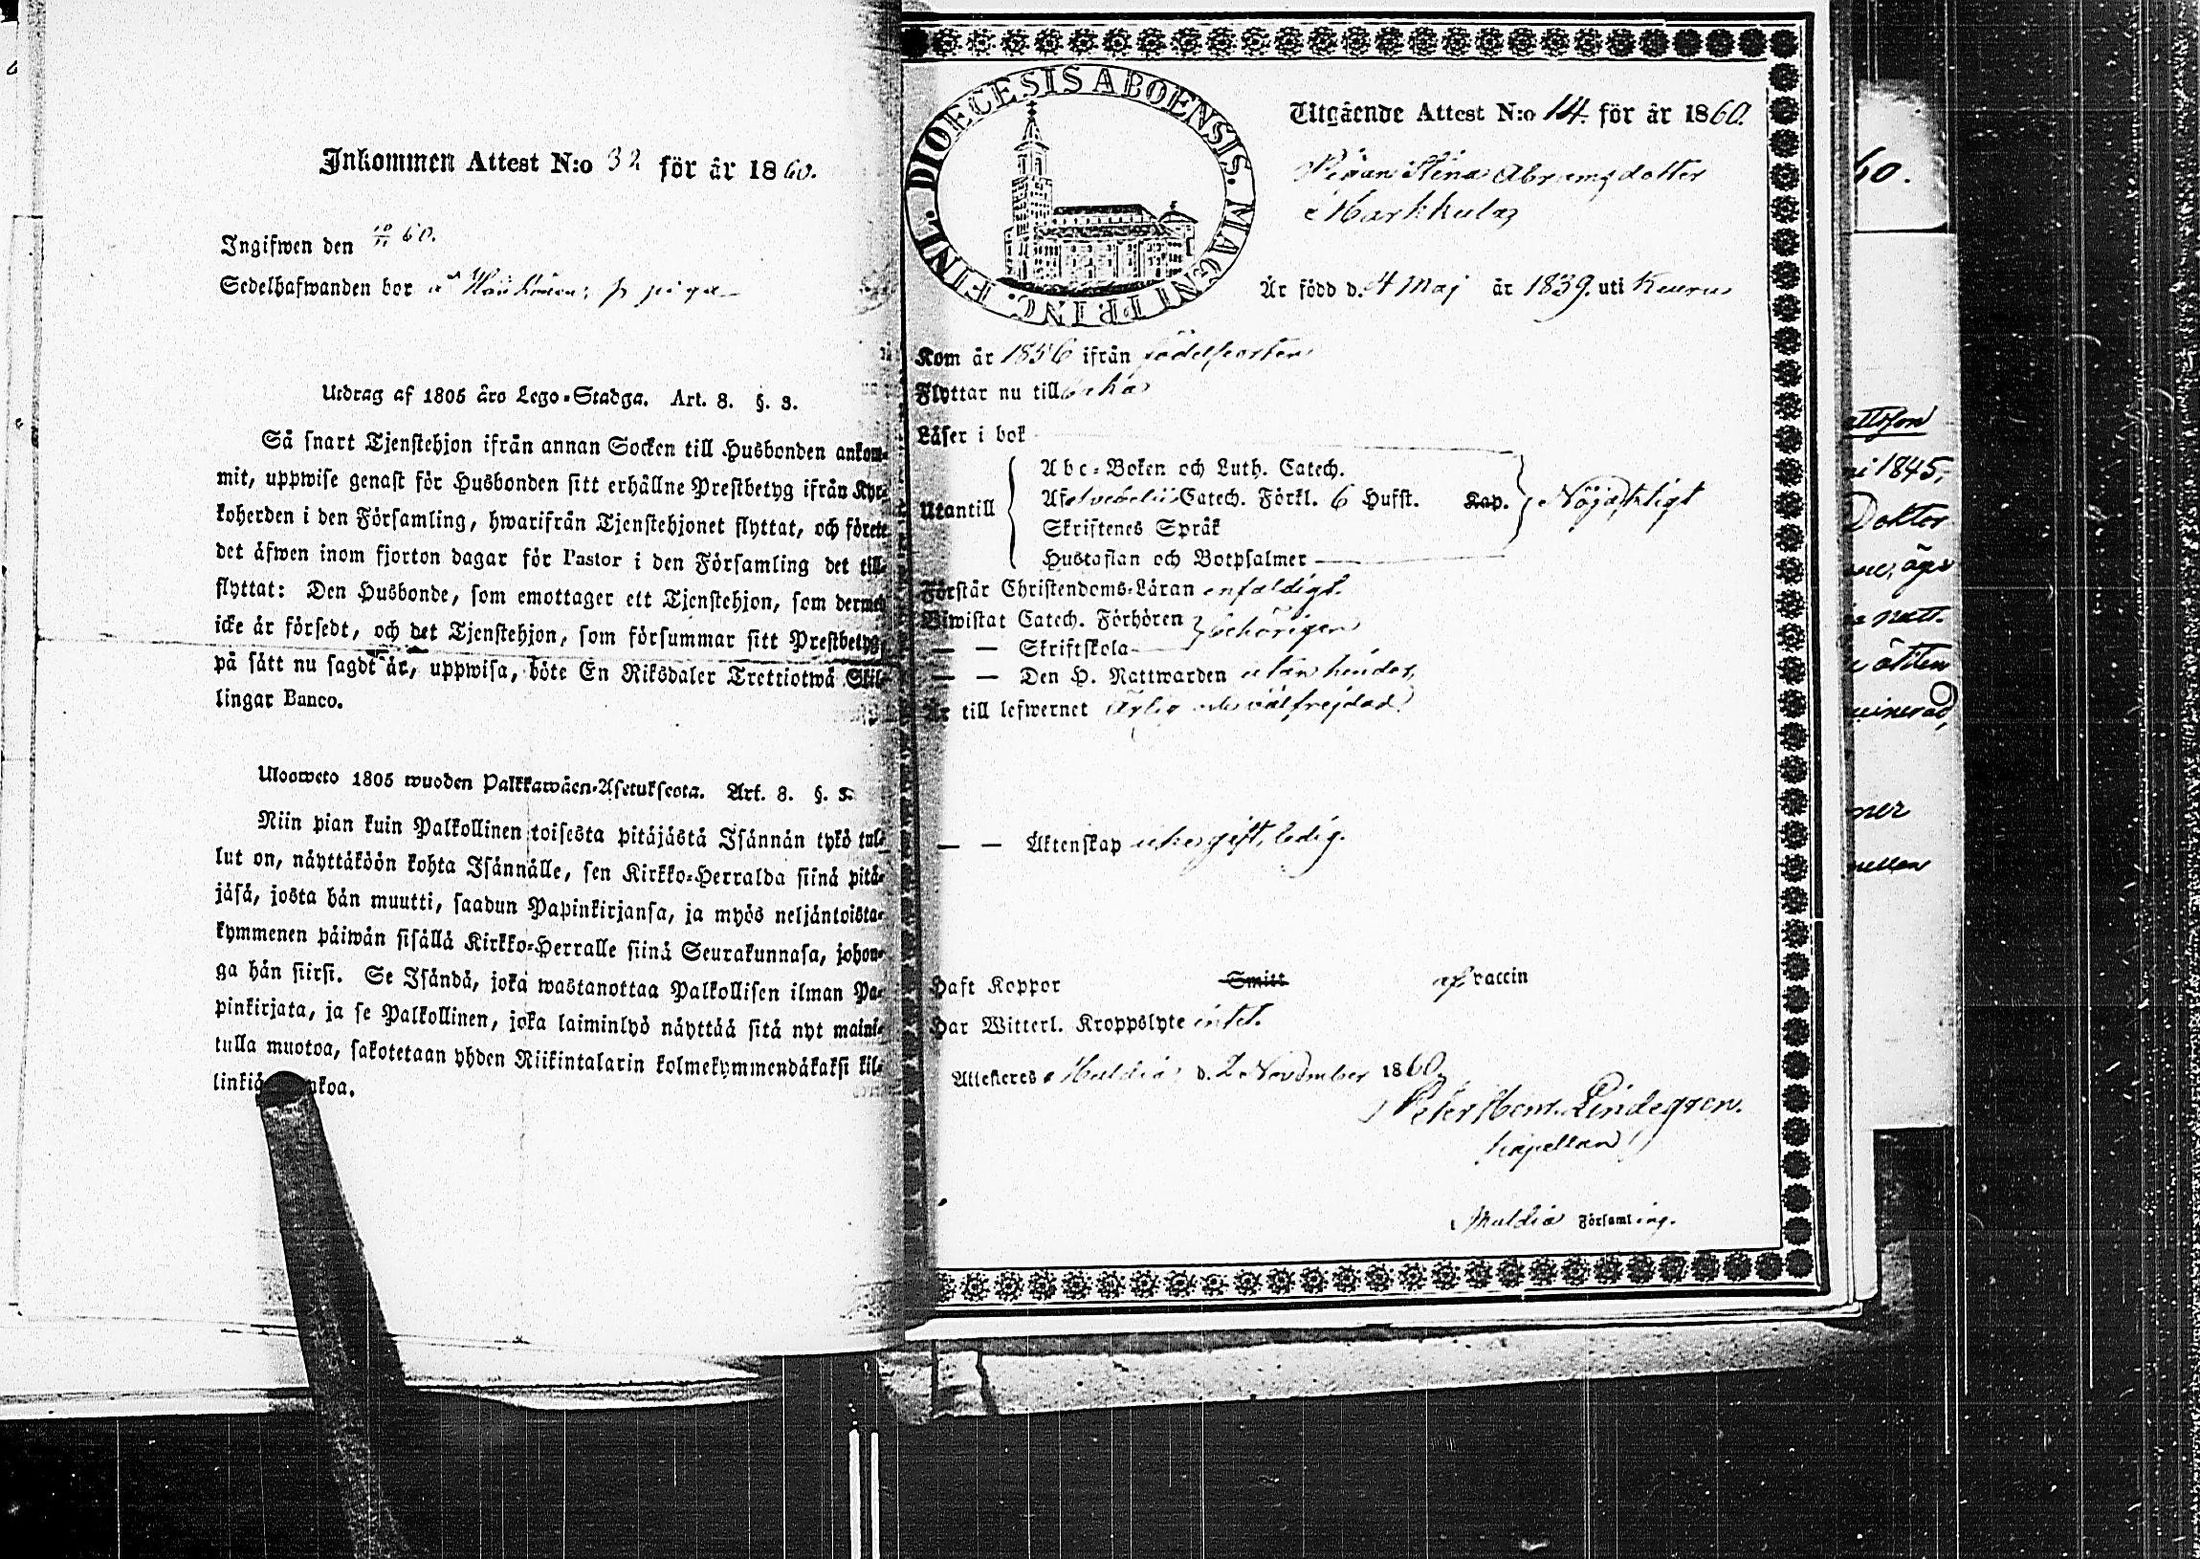 Inkommen Attest N:o 32 för år 1860.
Ingifwen den 10/11 60.
Sedelhafwanden bor å p piga
Utdrag af 1805 åro Lego-Stadga. Art. 8. §. 3.
Så snart Tjenstehjon ifrån annan Socken till Husbonden ankom-
mit, uppwise genast för Husbonden sitt erhållne Prestbetyg ifrån Kyr-
koherden i den Församling, hwarifrån Tjenstehjonet flyttat, och förete
det äfwen inom fjorton dagar för Pastor i den Församling det till-
flyttat: Den Husbonde, som emottager ett Tjenstehjon, som dermed
icke är försedt, och det Tjenstehjon, som försummar sitt Prestbetyg,
på sätt nu sagdt är, uppwisa, böte En Riksdaler Trettiotwå Skil-
lingar Banco.
Ulosweto 1805 wuoden Palkkawäen-Asetuksesta. Art. 8. §. 3.
Niin pian kuin Palkollinen toisesta pitäjästä Isännän tykö tul-
lut on, näyttäköön kohta Isännälle, sen Kirkko-Herralda siinä pitä-
jäsä, josta hän muutti, saadun Papinkirjansa, ja myös neljäntoista-
kymmenen päiwän sisällä Kirkko-Herralle siinä Seurakunnasa, johon-
ga hän siirsi. Se Isändä, joka wastanottaa Palkollisen ilman Pa-
pinkirjata, ja se Palkollinen, joka laiminlyö näyttää sitä nyt maini-
tulla muotoa, sakotetaan yhden Riikintalarin kolmekymmendäkaksi kil-
DIOECESIS ABOENSIS. MAGNI PRINC. FINL.
Utgående Attest N:o 14. för år 1860.
Pigan Stina Abramsdotter
Markkula
Är född d. 4 Maj år 1839. uti Keuru
Kom år 1856 ifrån födelseorten
Flyttar nu till
Läser i bok
Utantill
Abc-Boken och Luth. Catech.
Catech. Förkl. 6 Hufst. Kap. Nöjaktligt
Skriftenes Språk
Hustaflan och Botpsalmer
Förstår Christendoms-Läran enfaldigt.
Biwistat Catech. Förhören behörigen
— — Skriftskola
— — Den H. Nattwarden utan hinder,
Är till lefwernet Ärlig och välfrejdad
— — Äktenskap icke gift, ledig.
Haft Koppor Smitt af vaccin
Har Witterl. Kroppslyte intet.
Attesteras Muldia d. 2 November 1860,
Peter Hemr. Lindegren.
kapellan
Muldia Församling.
60.
ni 1845,
Doktor
natt-